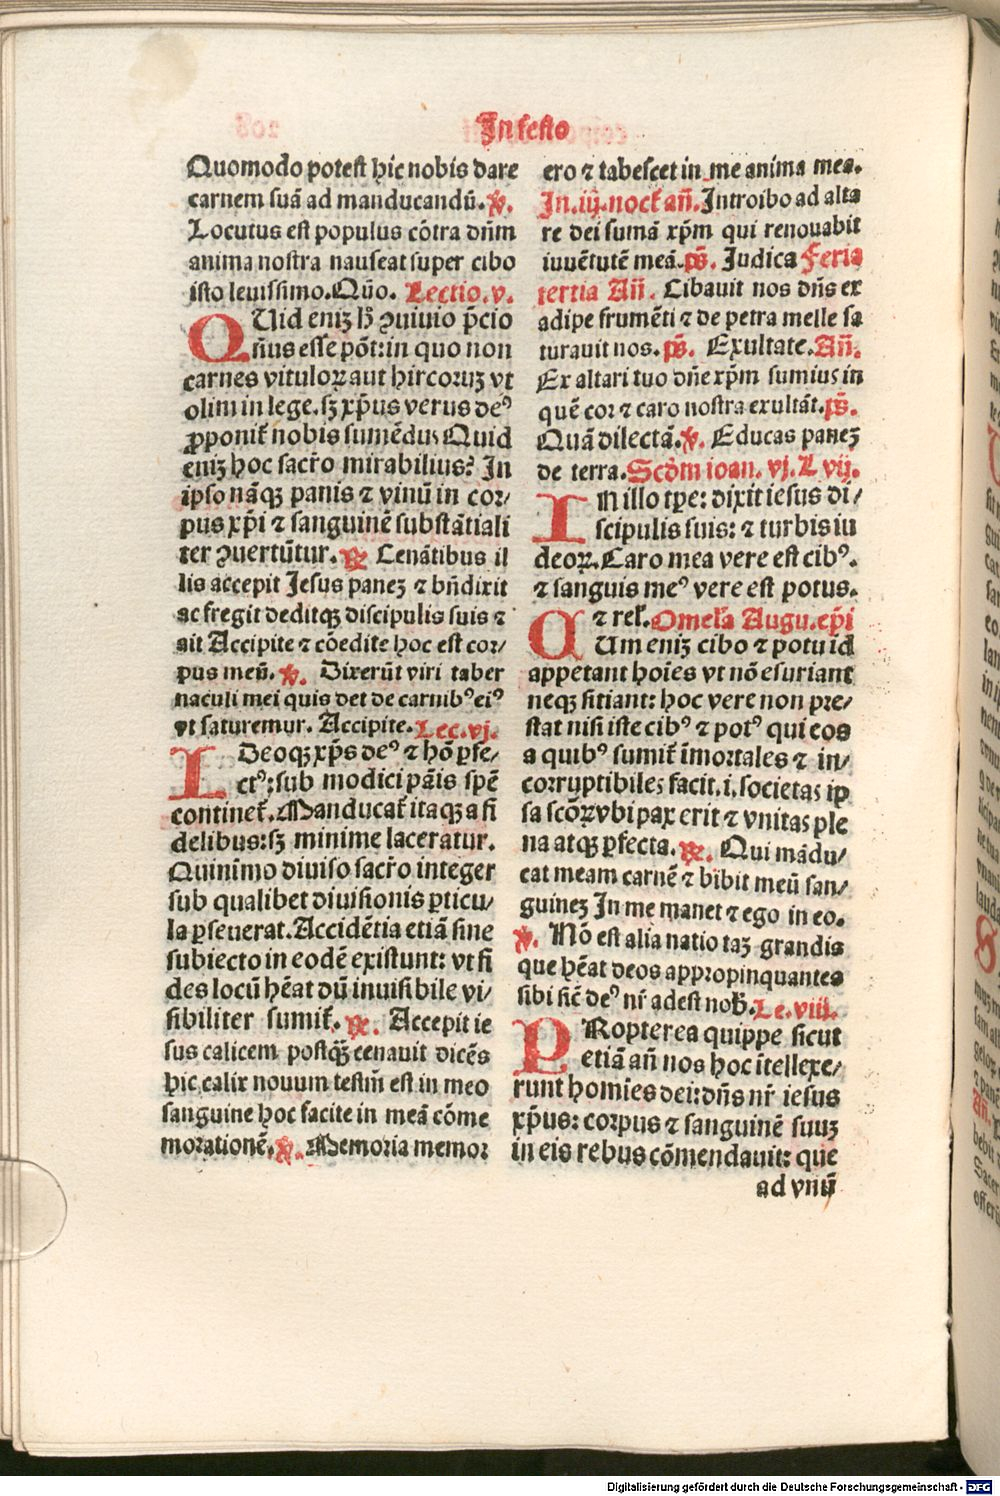 In festo
Quomodo potest hic nobis dare
carnem suã ad manducandũ. ℣.
Locutus est populus cõtra dñm
anima nostra nauseat super cibo
isto leuissimo. Quo. Lectio. v.
QUid eniꝫ hͦ ꝯuiuio p̃cio
ñus esse põt: in quo non
carnes vituloꝝ aut hircoruꝫ vt
olim in lege. sꝫ xp̃us verus deꝰ
ꝓponit̃ nobis sumẽdus Quid
eniꝫ hoc sacr̃o mirabilius? In
ipso nãqꝫ panis ⁊ vinũ in cor⸗
pus xp̃i ⁊ sanguinẽ substãtiali
ter ꝯuertũtur. ℟. Cenãtibus il
lis accepit Jesus paneꝫ ⁊ bñdixit
ac fregit deditqꝫ discipulis suis ⁊
ait Accipite ⁊ cõedite hoc est cor⸗
pus meũ. ℣. Dixerũt viri taber
naculi mei quis det de carnibꝰ eiꝰ
vt saturemur. Accipite. Lec. vj.
IDeoqꝫ xp̃s deꝰ ⁊ hõ ꝑfe⸗
ctꝰ: sub modici pãis spẽ
continet̃. Manducat̃ itaqꝫ a fi
delibus: sꝫ minime laceratur.
Quinĩmo diuiso sacr̃o integer
sub qualibet diuisionis ꝑticu⸗
la ꝑseuerat. Accidẽtia etiã sine
subiecto in eodẽ existunt: vt fi
des locũ hẽat dũ inuisibile vi⸗
sibiliter sumit̃. ℟. Accepit ie
sus calicem postqꝫ̃ cenauit dicẽs
hic calix nouum testm̃ est in meo
sanguine hoc facite in meã cõme
morationẽ. ℣. Memoria memor
ero ⁊ tabescet in me anima mea.
In. iij. noct̃ añ. Introibo ad alta
re dei sumã xp̃m qui renouabit
iuuẽtutẽ meã. ps̃. Judica Feria
tertia Añ. Cibauit nos dñs ex
adipe frumẽti ⁊ de petra melle sa
turauit nos. ps̃. Exultate. Añ.
Ex altari tuo dñe xp̃m sumius in
quẽ cor ⁊ caro nostra exultãt. ps̃.
Quã dilectã. ℣. Educas paneꝫ
de terra. Scd̃m ioan. vj. L vij.
IN illo tꝑe: dixit iesus di⸗
scipulis suis: ⁊ turbis iu
deoꝝ. Caro mea vere est cibꝰ.
⁊ sanguis meꝰ vere est potus.
⁊ rel̃. Omel̃a Augu. ep̃i
CUm eniꝫ cibo ⁊ potu id
appetant hoĩes vt nõ esuriant
neqꝫ sitiant: hoc vere non pre⸗
stat nisi iste cibꝰ ⁊ potꝰ qui eos
a quibꝰ sumit̃ ĩmortales ⁊ in⸗
corruptibiles facit. i. societas ip
sa scõꝝ vbi pax erit ⁊ vnitas ple
na atqꝫ ꝑfecta. ℟. Qui mãdu⸗
cat meam carnẽ ⁊ bibit meũ san⸗
guineꝫ In me manet ⁊ ego in eo.
℣. Nõ est alia natio taꝫ grandis
que hẽat deos appropinquantes
sibi sic̃ deꝰ nr̃ adest nob̃. Le. viij.
PRopterea quippe sicut
etiã añ nos hoc ĩtellexe⸗
runt homies dei: dñs nr̃ iesus
xp̃us: corpus ⁊ sanguinẽ suuꝫ
in eis rebus cõmendauit: que
ad vnũ
Digitalisierung gefördert durch die Deutsche Forschungsgemeinschaft - DFG